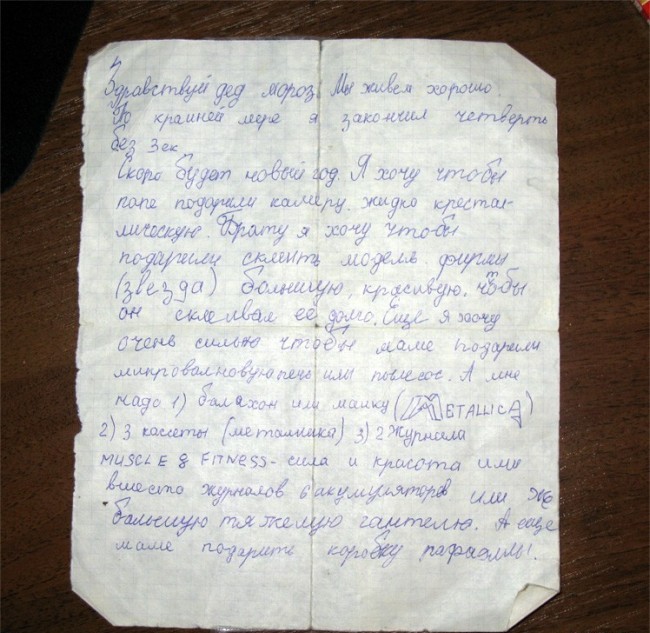 Здравствуй дед мороз. Мы живем хорошо.
По крайней мере я закончил четверть
без 3ек
Скоро будет новый год. Я хочу чтобы
папе подарили камеру. жидко крестал-
лическую. Брату я хочу чтобы
подарили склеить модель фирмы
(звезда) большую, красивую, чтобы
он склеивал её долго. Еще я хочу
очень сильно чтобы маме подарили
микроволновую печь или пылесос. А мне
надо 1) балахон или майку (METALLICA)
2) 3 кассеты (металлика) 3) 2 журнала
MUSCLE & FITNESS - сила и красота или
вместо журналов 6 акумуляторов или же
большую тяжелую гантелю. А еще
маме подарить коробку рафаэллы.